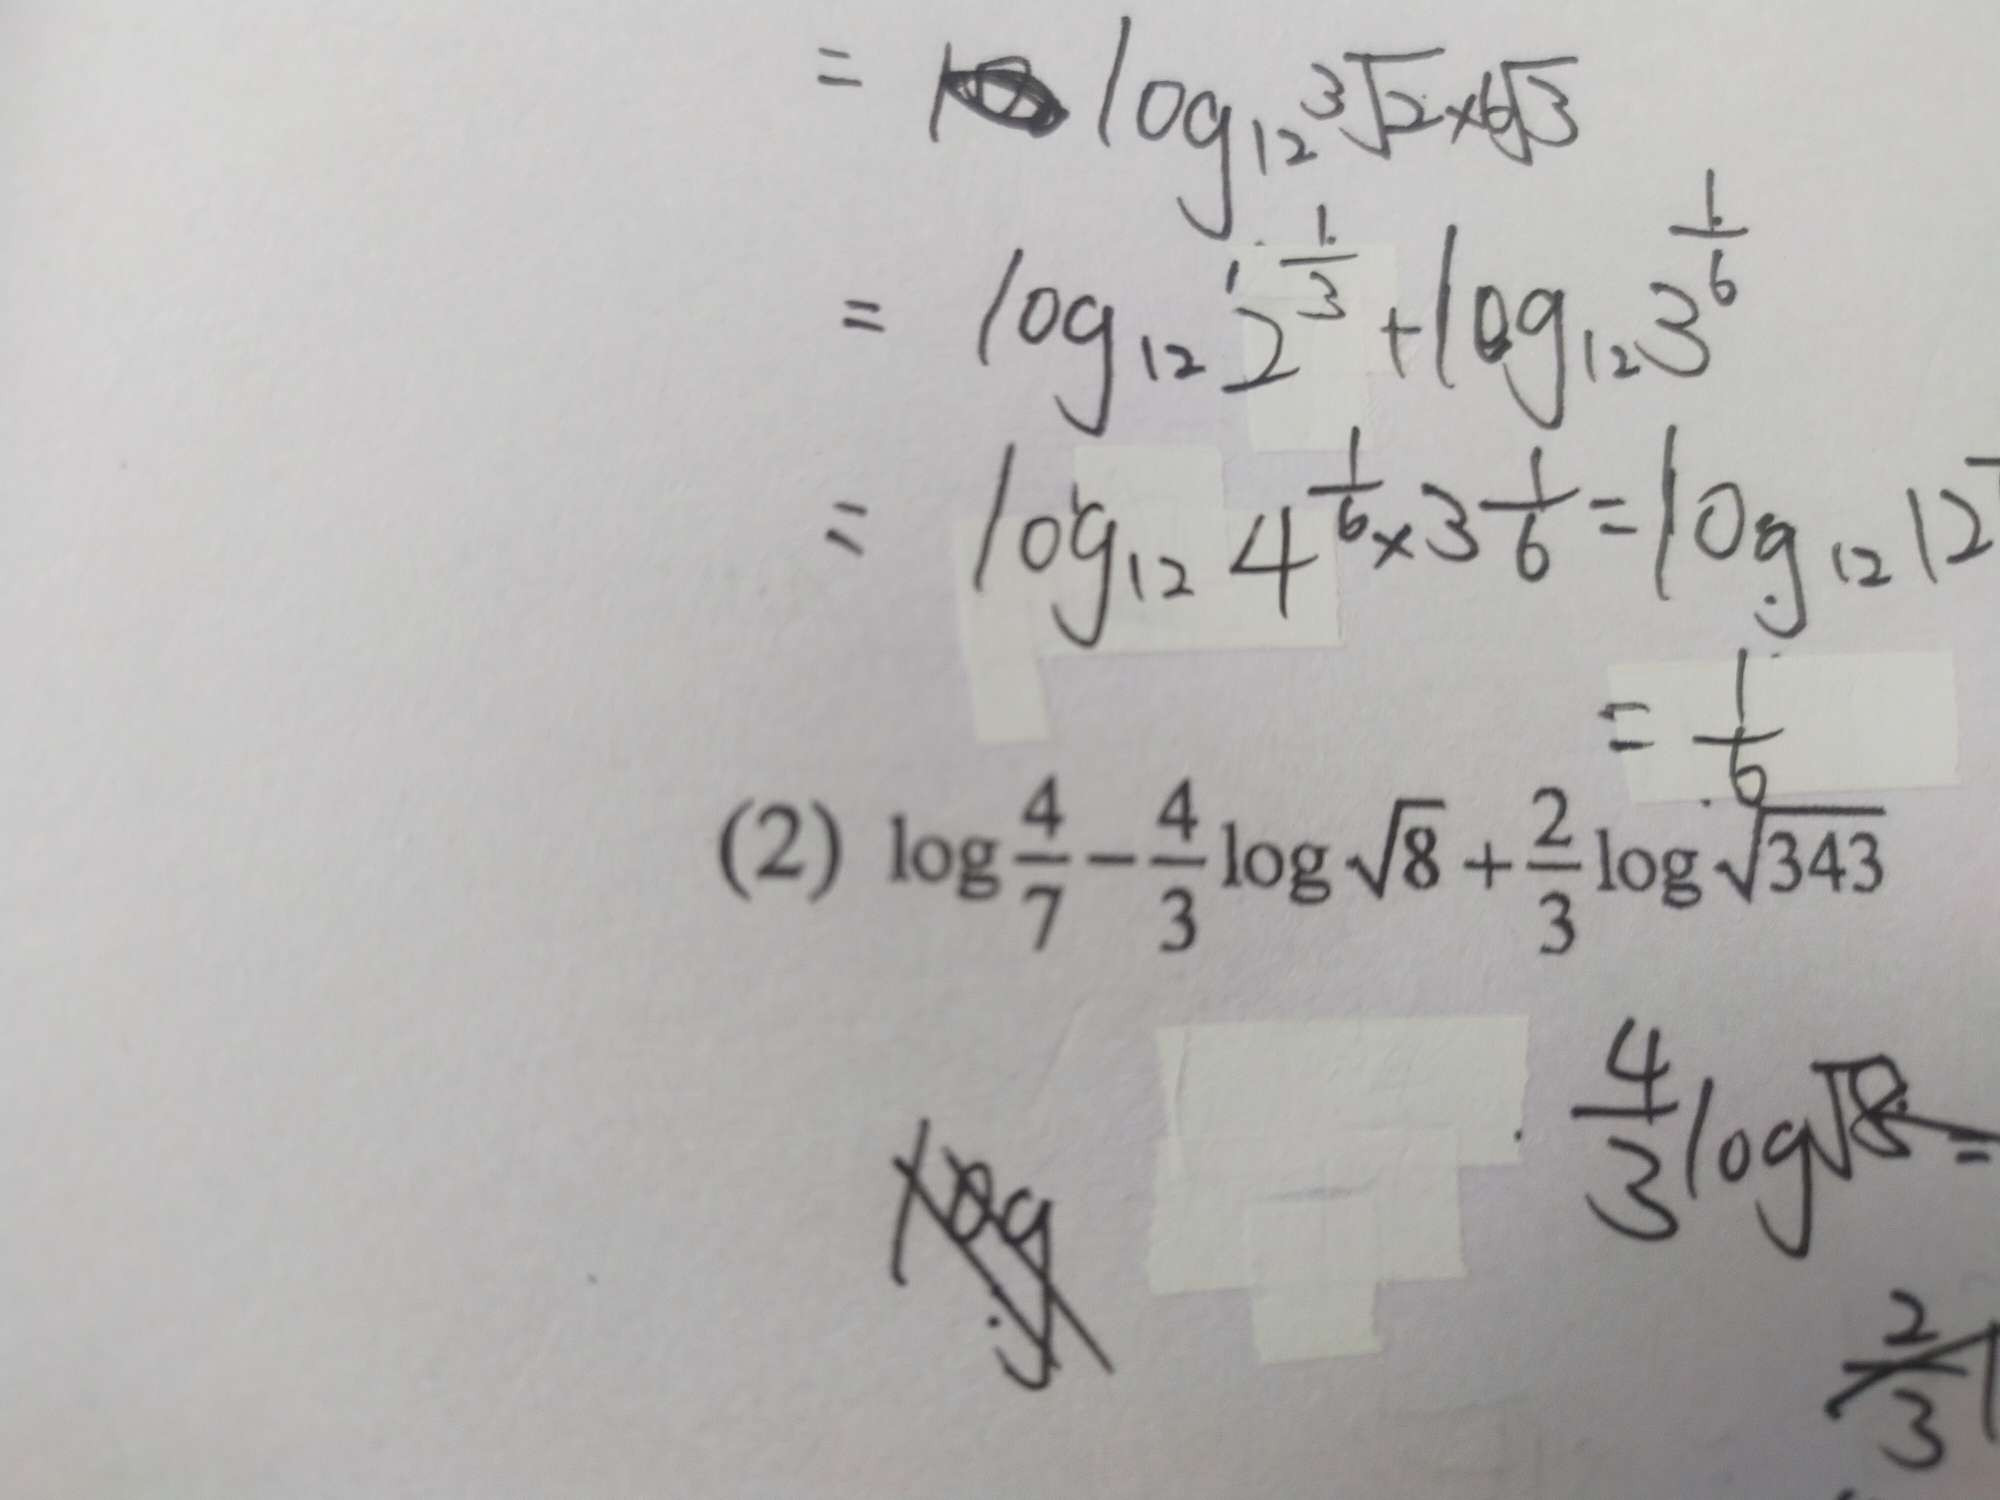 = log₁₂ ³√2 × ⁶√3
= log₁₂ 2^(1/3) + log₁₂ 3^(1/6)
= log₁₂ 4^(1/6) × 3^(1/6) = log₁₂ 12
= 1/6
(2) log 4/7 − 4/3 log √8 + 2/3 log √343
4/3 log √8 =
log
2/3